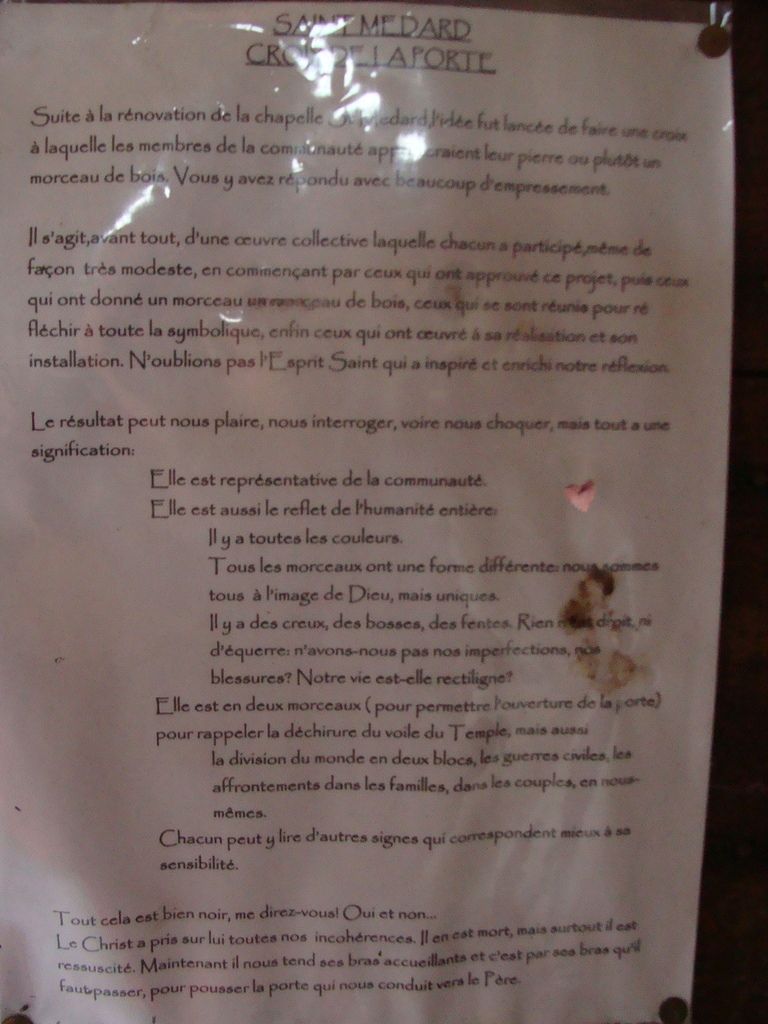 SAINT MEDARD
CROIX DE LA PORTE
Suite à la rénovation de la chapelle St Medard,l'idée fut lancée de faire une croix
à laquelle les membres de la communauté apporteraient leur pierre ou plutôt un
morceau de bois. Vous y avez répondu avec beaucoup d'empressement.
Il s'agit,avant tout, d'une œuvre collective laquelle chacun a participé,même de
façon très modeste, en commençant par ceux qui ont approuvé ce projet, puis ceux
qui ont donné un morceau un morceau de bois, ceux qui se sont réunis pour ré
fléchir à toute la symbolique, enfin ceux qui ont œuvré à sa réalisation et son
installation. N'oublions pas l'Esprit Saint qui a inspiré et enrichi notre réflexion.
Le résultat peut nous plaire, nous interroger, voire nous choquer, mais tout a une
signification:
Elle est représentative de la communauté.
Elle est aussi le reflet de l'humanité entière:
Il y a toutes les couleurs.
Tous les morceaux ont une forme différente: nous sommes
tous à l'image de Dieu, mais uniques.
Il y a des creux, des bosses, des fentes. Rien n'est droit, ni
d'équerre: n'avons-nous pas nos imperfections, nos
blessures? Notre vie est-elle rectiligne?
Elle est en deux morceaux ( pour permettre l'ouverture de la porte)
pour rappeler la déchirure du voile du Temple, mais aussi
la division du monde en deux blocs, les guerres civiles, les
affrontements dans les familles, dans les couples, en nous-
mêmes.
Chacun peut y lire d'autres signes qui correspondent mieux à sa
sensibilité.
Tout cela est bien noir, me direz-vous! Oui et non...
Le Christ a pris sur lui toutes nos incohérences. Il en est mort, mais surtout il est
ressuscité. Maintenant il nous tend ses bras accueillants et c'est par ses bras qu'il
faut passer, pour pousser la porte qui nous conduit vers le Père.